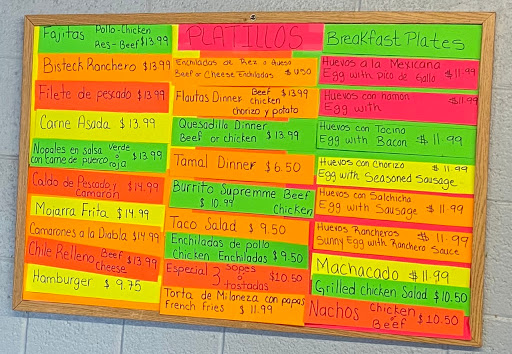 Fajitas Pollo-Chicken
Res-Beef $13.99
Bisteck Ranchero $13.99
Filete de pescado $13.99
Carne Asada $13.99
Nopales en salsa Verde
con carne de puerco o $13.99
roja
Caldo de Pescado y
Camarón $14.99
Mojarra Frita $14.99
Camarones a la Diabla $14.99
Chile Relleno Beef $13.99
Cheese
Hamburger $9.75
PLATILLOS
Enchiladas de Rez o Queso
Beef or Cheese Enchiladas
Flautas Dinner Beef $13.99
chicken
chorizo y potato
Quesadilla Dinner
Beef or chicken $13.99
Tamal Dinner $6.50
Burrito Supremme Beef
$10.99 Chicken
Taco Salad $9.50
Enchiladas de pollo
Chicken Enchiladas $9.50
Especial 3 Sopes $10.50
o
tostadas
Torta de Milaneza con papas
French fries $11.99
Breakfast Plates
Huevos a la Mexicana
Egg with pico de gallo $11.99
Huevos con Hamón
Egg with $11.99
Huevos con Tocino
Egg with Bacon $11.99
Huevos con Chorizo $11.99
Egg with Seasoned Sausage
Huevos con Salchicha
Egg with Sausage $11.99
Huevos Rancheros $11.99
Sunny Egg with Ranchero Sauce
Machacado $11.99
Grilled Chicken Salad $10.50
Nachos Chicken $10.50
or
Beef